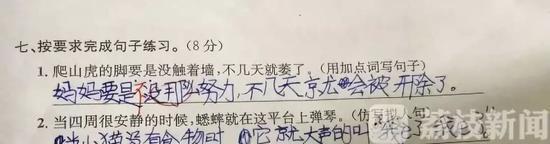 七、按要求完成句子练习。(8分)
1. 爬山虎的脚要是没触着墙,不几天就萎了。(用加点词写句子)
妈妈要是不没用队努力,不几天就会被开除了。
2. 当四周很安静的时候,蟋蟀就在这平台上弹琴。(仿写句)
当小猫没有食物时,它就大声的叫
荔枝新闻